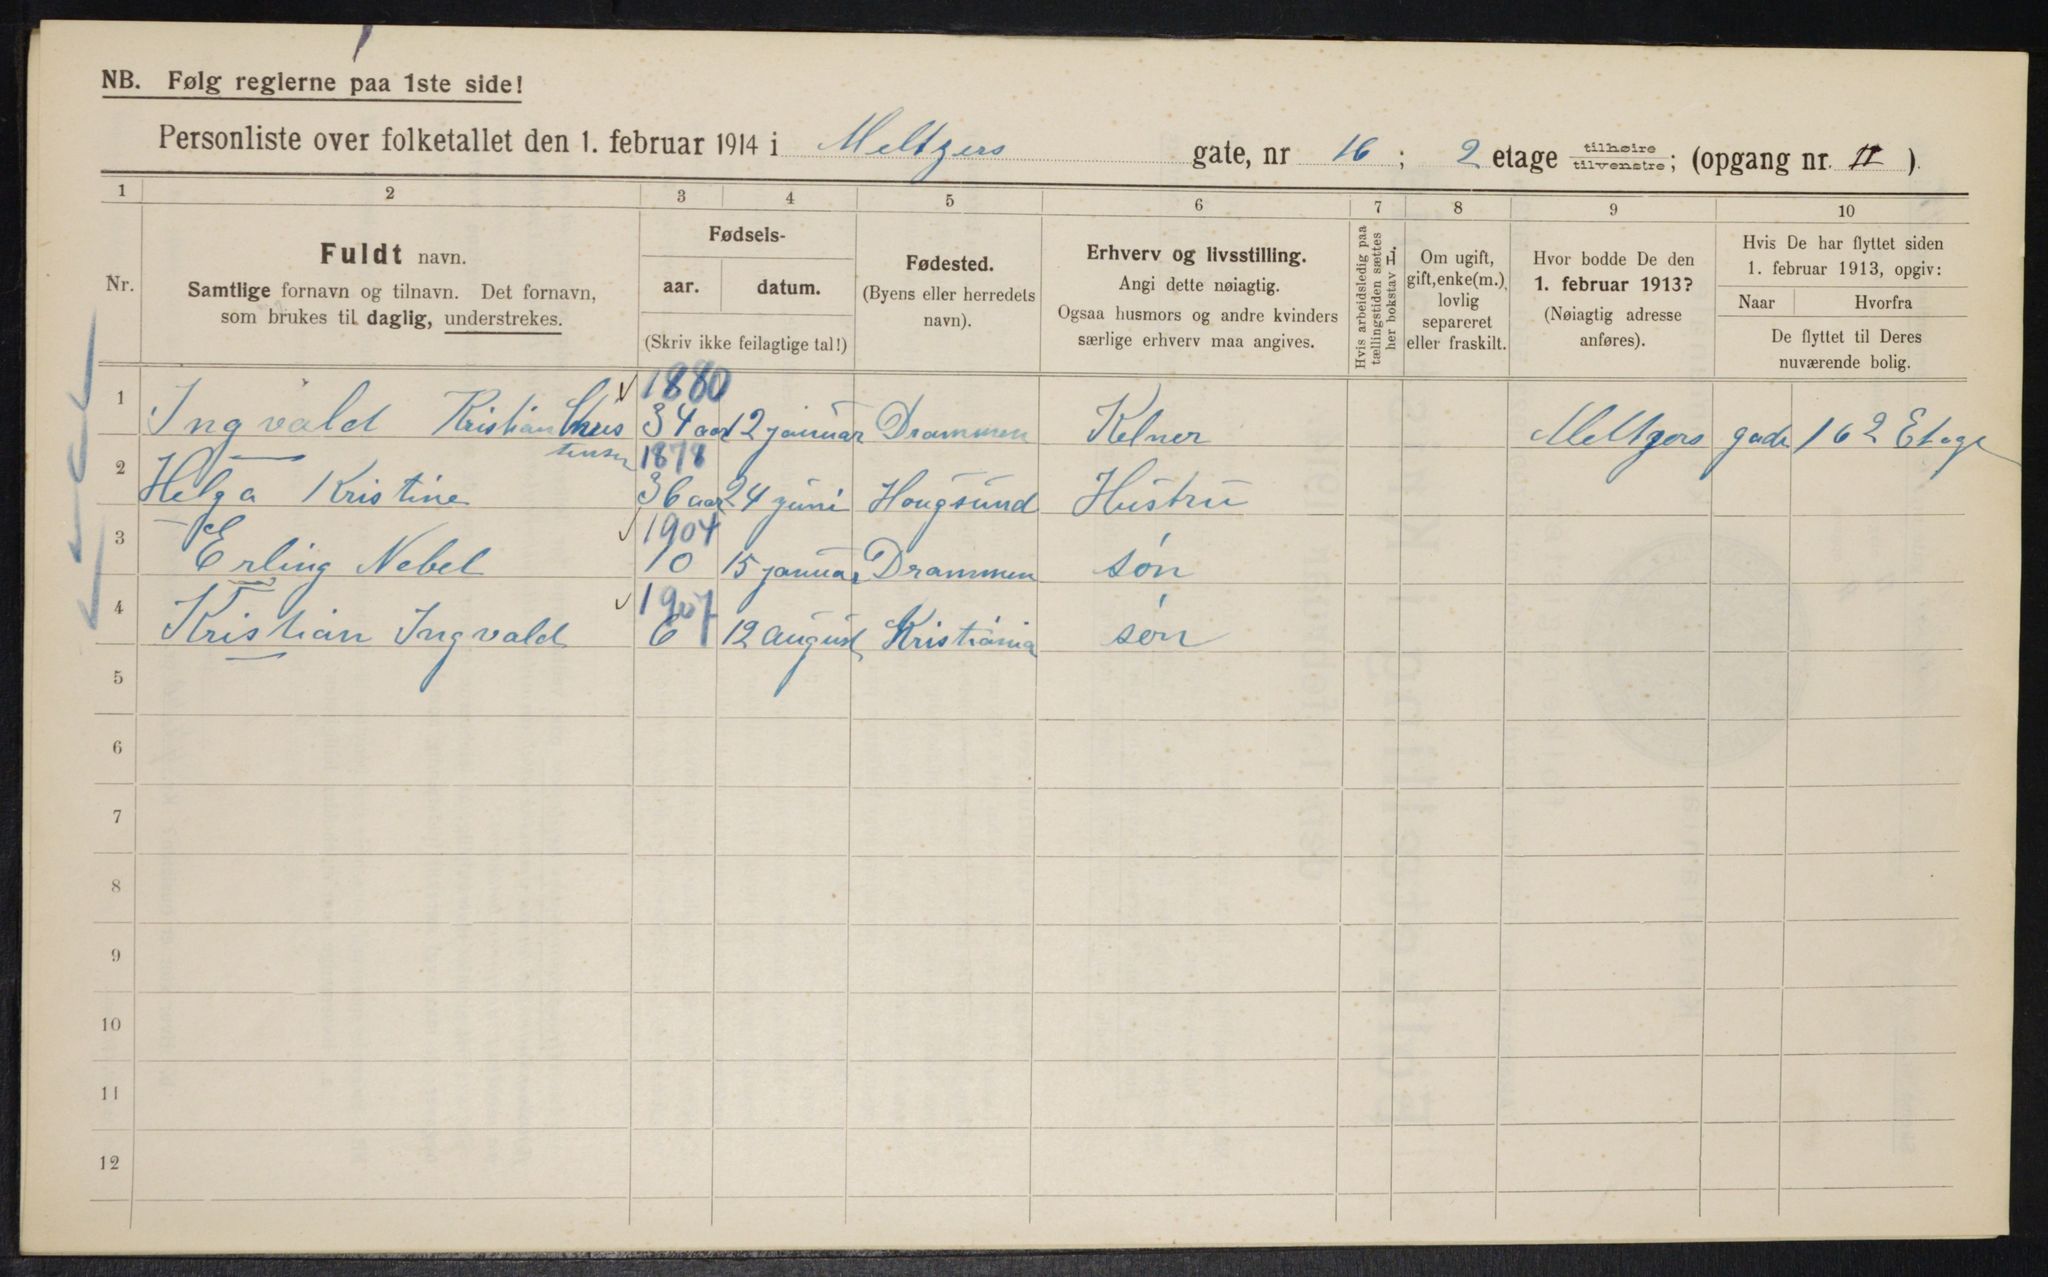 NB. Følg reglerne paa 1ste side!
Personliste over folketallet den 1. februar 1914 i Meltzers gate, nr 16; 2 etage tilhøire/tilvenstre; (opgang nr. II).
1 2 3 4 5 6 7 8 9 10
Nr.
Fuldt navn.
Samtlige fornavn og tilnavn. Det fornavn,
som brukes til daglig, understrekes.
Fødsels-
aar. datum.
(Skriv ikke feilagtige tal!)
Fødested.
(Byens eller herredets
navn).
Erhverv og livsstilling.
Angi dette nøiagtig.
Ogsaa husmors og andre kvinders
særlige erhverv maa angives.
Hvis arbeidsledig paa
tællingstiden sættes
her bokstav L.
Om ugift,
gift, enke(m.),
lovlig
separeret
eller fraskilt.
Hvor bodde De den
1. februar 1913?
(Nøiagtig adresse
anføres).
Hvis De har flyttet siden
1. februar 1913, opgiv:
Naar Hvorfra
De flyttet til Deres
nuværende bolig.
1880
1 Ingvald Kristian Chris 34 aar 12 januar Drammen Kelner Meltzers gade 16 2 Etage
tensen 1878
2 Helga Kristine 36 aar 24 juni Hougsund Hustru
1904
3 Erling Nebel 10 15 januar Drammen søn
1907
4 Kristian Ingvald 6 12 august Kristiania søn
5
6
7
8
9
10
11
12